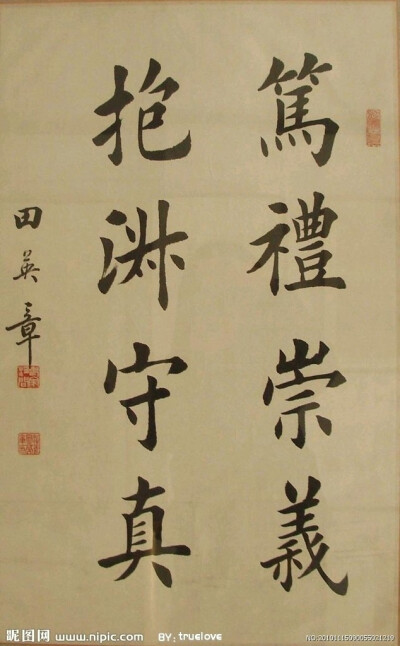 篤禮崇義
抱淑守真
田英章
昵图网 www.nipic.com BY: truelove
NO:20101115090055021219